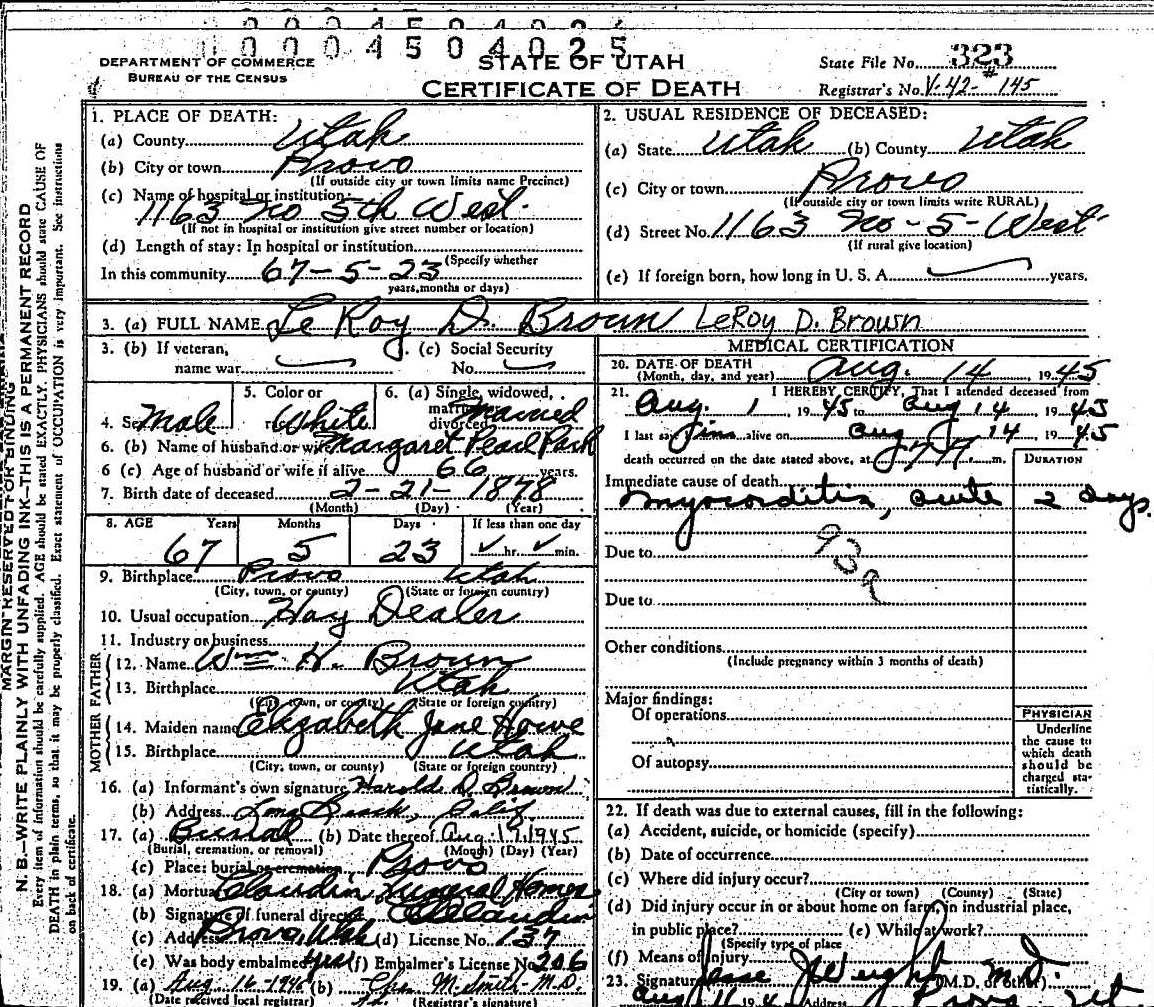 0004504025
DEPARTMENT OF COMMERCE
BUREAU OF THE CENSUS
STATE OF UTAH
CERTIFICATE OF DEATH
State File No. 323
Registrar's No. V-42-#145
MARGIN RESERVED FOR BINDING
N. B.—WRITE PLAINLY WITH UNFADING INK—THIS IS A PERMANENT RECORD
Every item of information should be carefully supplied. AGE should be stated EXACTLY. PHYSICIANS should state CAUSE OF
DEATH in plain terms, so that it may be properly classified. Exact statement of OCCUPATION is very important. See instructions
on back of certificate.
1. PLACE OF DEATH:
(a) County Utah
(b) City or town Provo
(If outside city or town limits name Precinct)
(c) Name of hospital or institution:
1163 No 5th West
(If not in hospital or institution give street number or location)
(d) Length of stay: In hospital or institution
(Specify whether
In this community 67-5-23
years, months or days)
2. USUAL RESIDENCE OF DECEASED:
(a) State Utah (b) County Utah
(c) City or town Provo
(If outside city or town limits write RURAL)
(d) Street No. 1163 No-5-West
(If rural give location)
(e) If foreign born, how long in U. S. A. years.
3. (a) FULL NAME Le Roy D. Brown LeRoy D. Brown
3. (b) If veteran,
name war
3. (c) Social Security
No.
4. Sex Male
5. Color or
race White
6. (a) Single, widowed,
married,
divorced Married
6. (b) Name of husband or wife Margaret Pearl Park
6 (c) Age of husband or wife if alive 66 years.
7. Birth date of deceased 2-21-1878
(Month) (Day) (Year)
8. AGE Years Months Days If less than one day
67 5 23 hr. min.
9. Birthplace Provo Utah
(City, town, or county) (State or foreign country)
10. Usual occupation Hay Dealer
11. Industry or business
FATHER
12. Name Wm H. Brown
13. Birthplace Utah
(City, town, or county) (State or foreign country)
MOTHER
14. Maiden name Elizabeth Jane Howe
15. Birthplace Utah
(City, town, or county) (State or foreign country)
16. (a) Informant's own signature Harold D. Brown
(b) Address Long Beach, Calif.
17. (a) Burial (b) Date thereof Aug. 17 1945
(Burial, cremation, or removal) (Month) (Day) (Year)
(c) Place: burial or cremation, Provo
18. (a) Mortuary Claudin Funeral Homes
(b) Signature of funeral director Claudin
(c) Address Provo, Utah (d) License No. 137
(e) Was body embalmed? yes (f) Embalmer's License No. 206
19. (a) Aug 16-1945 (b) M. Smith-M.D.
(Date received local registrar) (Registrar's signature)
MEDICAL CERTIFICATION
20. DATE OF DEATH
(Month, day, and year) Aug. 14 1945
21. I HEREBY CERTIFY, That I attended deceased from
Aug. 1, 1945 to Aug 14 1945
I last saw him alive on Aug 14 1945
death occurred on the date stated above, at m.
DURATION
Immediate cause of death
Myocarditis, acute 2 days.
Due to
93a
Due to
Other conditions
(Include pregnancy within 3 months of death)
Major findings:
Of operations
Of autopsy
PHYSICIAN
Underline
the cause to
which death
should be
charged sta-
tistically.
22. If death was due to external causes, fill in the following:
(a) Accident, suicide, or homicide (specify)
(b) Date of occurrence
(c) Where did injury occur?
(City or town) (County) (State)
(d) Did injury occur in or about home on farm, in industrial place,
in public place? (e) While at work?
(Specify type of place
(f) Means of injury
23. Signature Jesse J Weight (M.D. M.D.
Aug 16 Address Provo